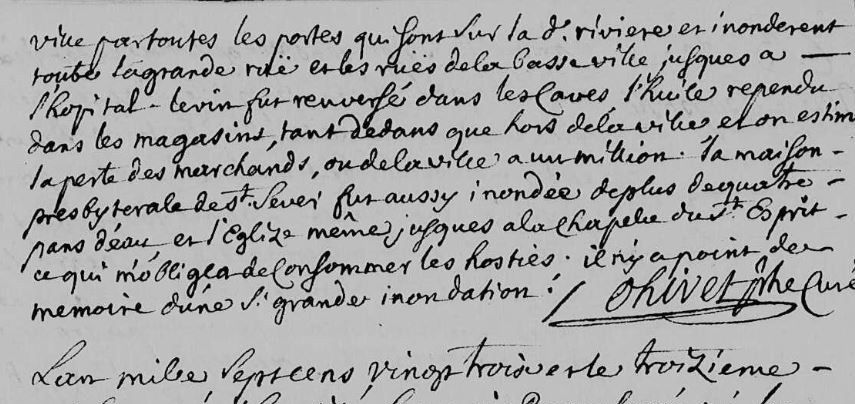 ville partoutes les portes qui sont sur la de. riviere et inonderent
toute lagrande ruë et les ruës dela basse ville jusques a
l'hopital. levin fut renversé dans les Caves, l'huile rependu
dans les magasins, tant dedans que hors dela ville et on estim
la perte des marchands, ou dela ville a un million. la maison
presbyterale de st. Sever fut aussy inondée deplus dequatre
pans d'eau, et l'Eglize même jusques ala Chapelle du st. Esprit
ce qui m'obligea de Consommer les hosties. il n'y a point de
memoire d'une si grande inondation.
Olivet ptre Curé
Lan mille sept cens vingt trois et le troizieme